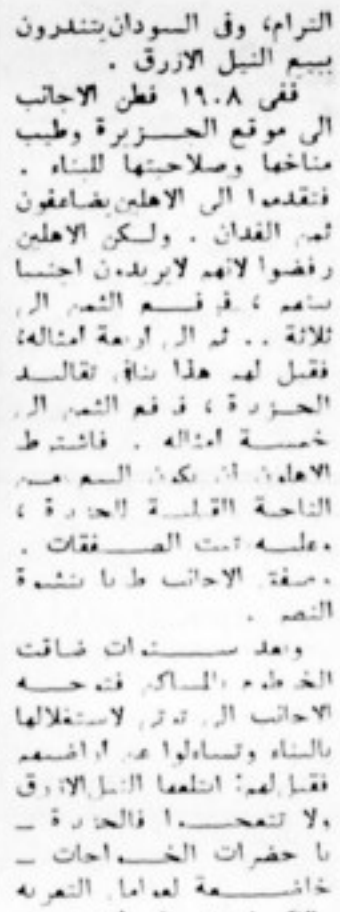 الترام، وفى السودان يتندرون
ببيع النيل الازرق .
ففى ١٩٠٨ فطن الاجانب
الى موقع الجزيرة وطيب
مناخها وصلاحيتها للبناء .
فتقدموا الى الاهلين يضاعفون
ثمن الفدان . ولكن الاهلين
رفضوا لانهم لايريدون اجنبيا
بينهم ، فرفع الثمن الى
ثلاثة .. ثم الى اربعة امثاله،
فقيل لهم هذا ينافى تقاليد
الجزيرة ، فرفع الثمن الى
خمسة امثاله . فاشترط
الاهلون ان يكون البيع من
الناحية القبلية للجزيرة ،
وعليه تمت الصفقات .
وصفق الاجانب طربا بنشوة
النصر .
وبعد سنوات ضاقت
الخرطوم بالمساكن فتوجه
الاجانب الى توتى لاستغلالها
بالبناء وتساءلوا عن اراضيهم
فقيل لهم: ابتلعها النيل الازرق
ولا تتعجبوا فالجزيرة –
يا حضرات الخواجات –
خاضعة لعوامل التعرية